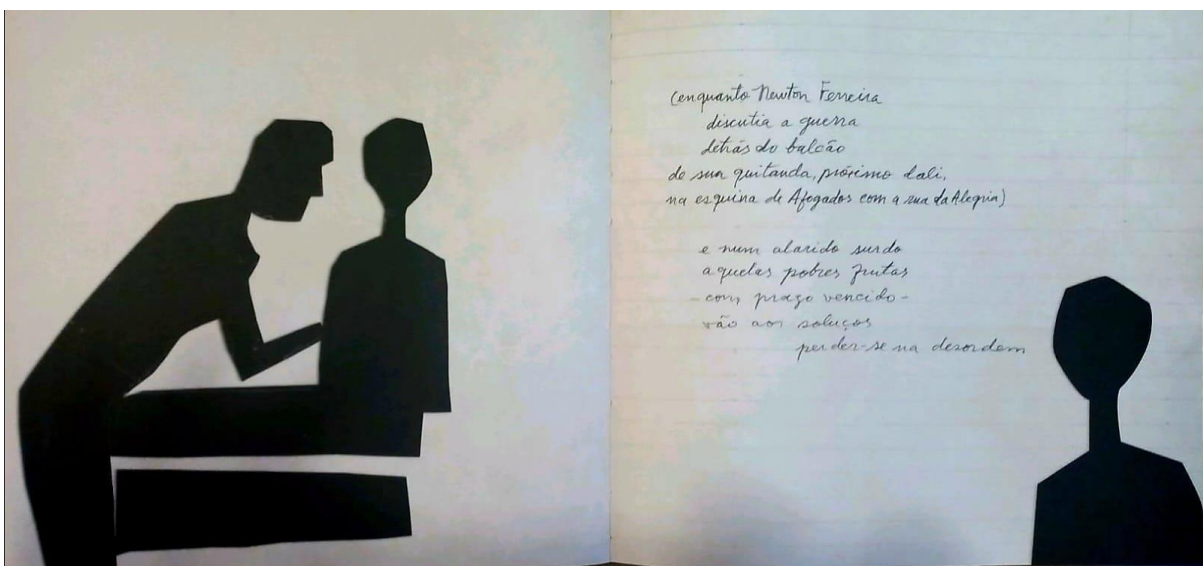 (enquanto Newton Ferreira
discutia a guerra
detrás do balcão
de sua quitanda, próximo dali,
na esquina de Afogados com a rua da Alegria)
e num alarido surdo
aquelas pobres frutas
- com prazo vencido -
vão aos soluços
perder-se na desordem